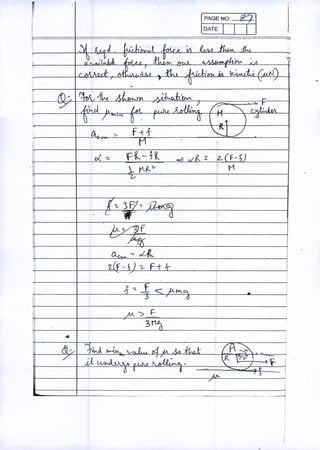 PAGE NO. 87
DATE
If reqd. frictional force is less than the
available force, then our assumption is
correct, otherwise, the friction is kinetic (μN)
Q:- For the shown situation, F
find μmin for pure rolling M cylinder
R
acm = F+f
M
α = FR-fR ⇒ αR = 2(F-f)
½ MR² M
acm = αR
2(F-f) = F+f
f = F < μmg
3
μ > F
3Mg
Q:- Find min. value of μ so that
it undergoes pure rolling. R F
f
μ